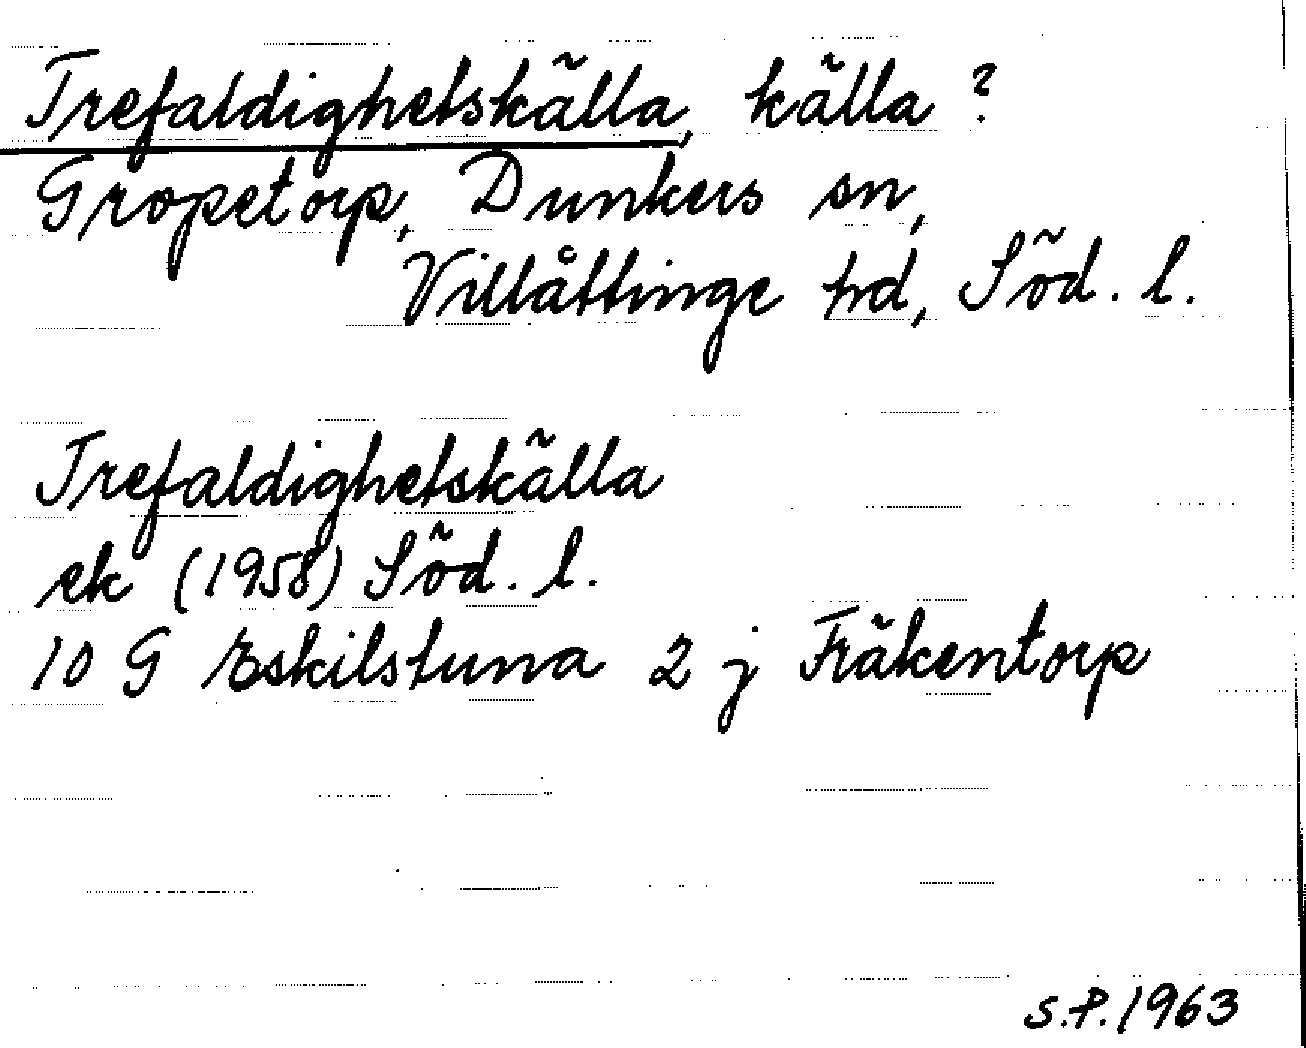 Trefaldighetskälla, källa?
Gropetorp, Dunkers sn,
Villåttinge hd, Söd. l.
Trefaldighetskälla
ek (1958) Söd. l.
10 G Eskilstuna 2 j Fräkentorp
S.P. 1963